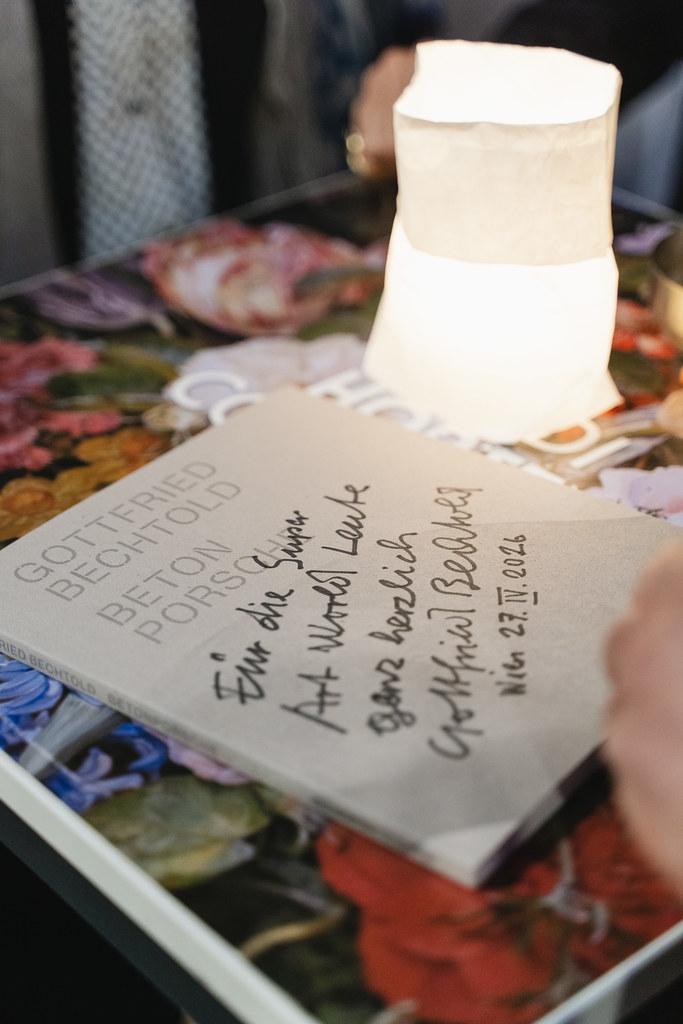 GOTTFRIED
BECHTOLD
BETON
PORSCH
FRIED BECHTOLD BETON
Für die Super
Art World Leute
ganz herzlich
Gottfried Bechtold
Wien 27.IV.2026